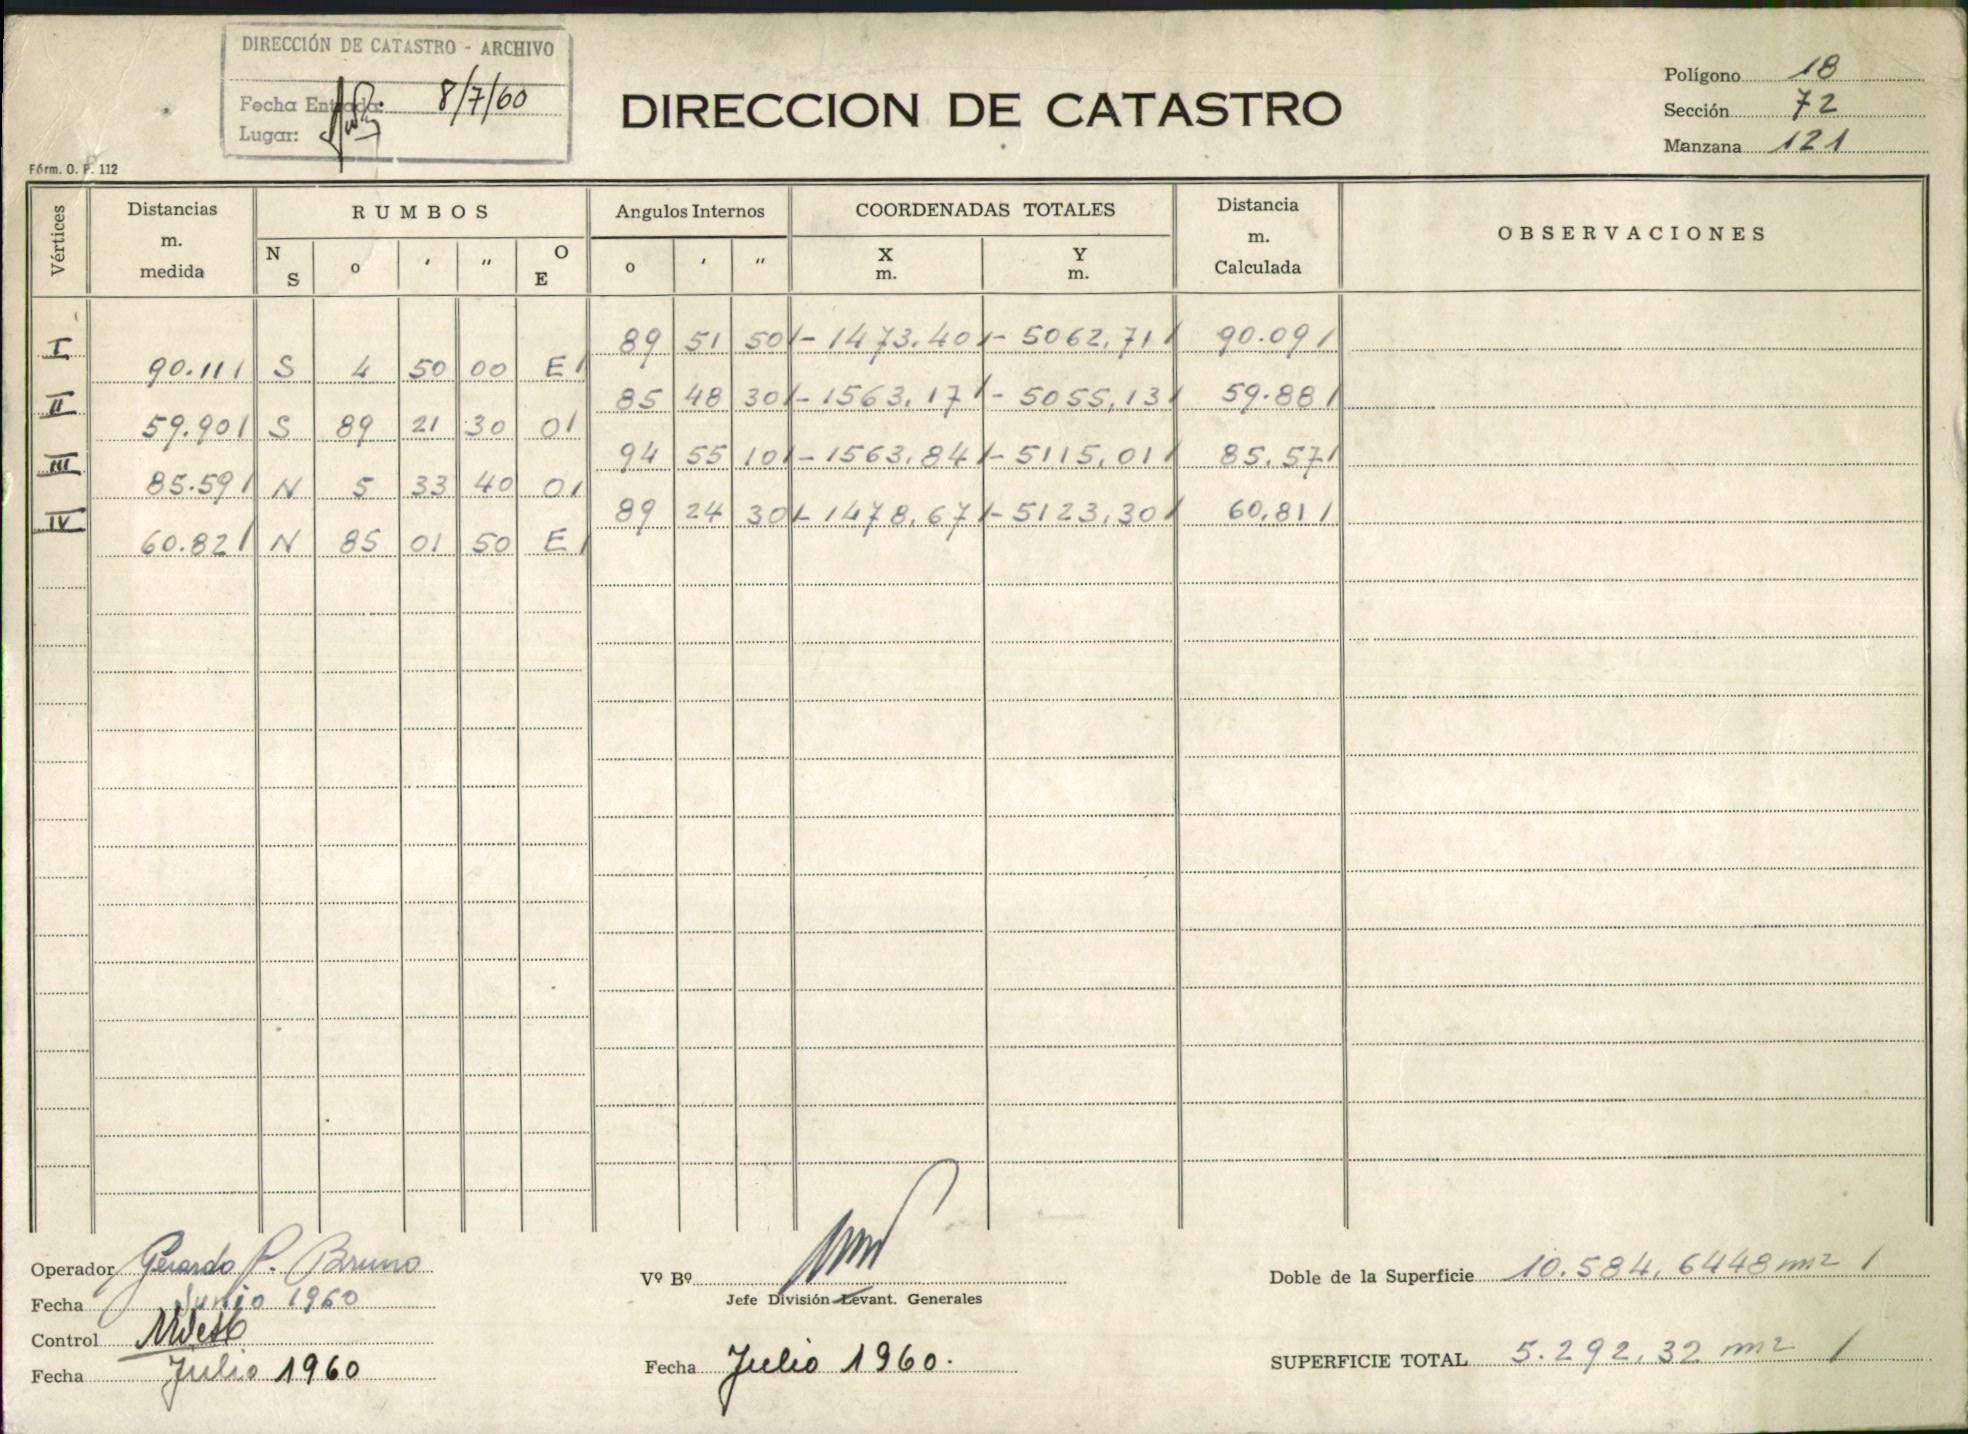 DIRECCIÓN DE CATASTRO - ARCHIVO
Fecha Entrada: 8/7/60
Lugar:
DIRECCION DE CATASTRO
Polígono 18
Sección 72
Manzana 121
Fórm. O. P. 112
Vértices Distancias m. medida RUMBOS Angulos Internos COORDENADAS TOTALES Distancia m. Calculada OBSERVACIONES
N S o ' " O E o ' " X m. Y m.
I 89 51 50 - 1473.40 - 5062,71 90.09
90.11 S 4 50 00 E
II 85 48 30 - 1563,17 - 5055,13 59.88
59.90 S 89 21 30 O
III 94 55 10 - 1563.84 - 5115,01 85.57
85.59 N 5 33 40 O
IV 89 24 30 - 1478,67 - 5123,30 60,81
60.82 N 85 01 50 E
Operador Gerardo P. Bruno
Fecha Junio 1960
Control
Fecha Julio 1960
Vº Bº
Jefe División Levant. Generales
Fecha Julio 1960.
Doble de la Superficie 10.584,6448 m2
SUPERFICIE TOTAL 5.292,32 m2